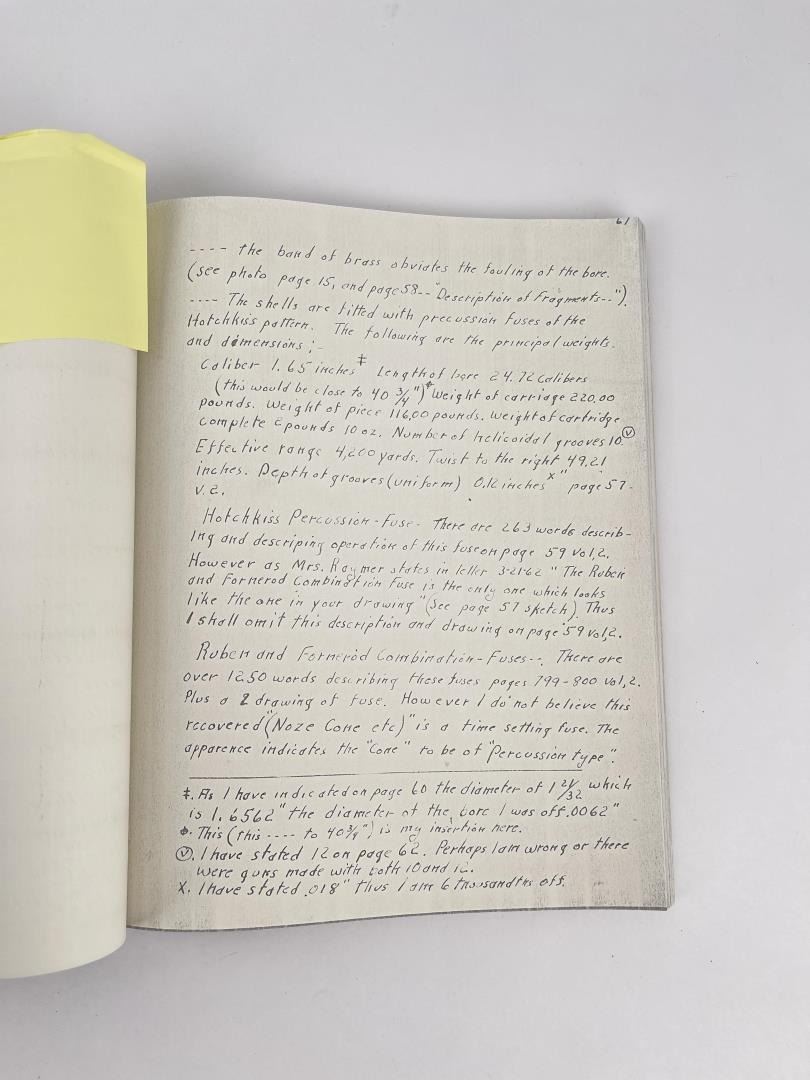 61
---- the band of brass obviates the fouling of the bore.
(see photo page 15, and page 58-- "Description of Fragments--").
---- The shells are fitted with precussion fuses of the
Hotchkiss pattern. The following are the principal weights.
and dimensions;-
Caliber 1.65 inches ‡ Length of bore 24.72 Calibers
(this would be close to 40 3/4") Weight of carriage 220.00
pounds. Weight of piece 116.00 pounds. Weight of cartridge
complete 2 pounds 10 oz. Number of helicoidal grooves 10. Ⓥ
Effective range 4,200 yards. Twist to the right 49.21
inches. Depth of grooves (uniform) 0.12 inches x " page 57-
V.2.
Hotchkiss Percussion-Fuse- There are 263 words describ-
ing and descriping operation of this fuse on page 59 Vol,2.
However as Mrs. Raymer states in letter 3-21-62 "The Ruben
and Fornerod Combination Fuse is the only one which looks
like the one in your drawing" (See page 57 sketch). Thus
I shall omit this description and drawing on page 59 Vol,2.
Ruben and Fornerod Combination-Fuses--. There are
over 1250 words describing these fuses pages 799-800 Vol,2.
Plus a 2 drawing of fuse. However I do not believe this
recovered "(Noze Cone etc)" is a time setting fuse. The
apparence indicates the "Cone" to be of "Percussion type".
‡. As I have indicated on page 60 the diameter of 1 21/32 which
is 1.6562" the diameter of the bore I was off .0062"
. This (this ---- to 40 3/4") is my insertion here.
Ⓥ. I have stated 12 on page 62. Perhaps I am wrong or there
were guns made with both 10 and 12.
X. I have stated .018" thus I am 6 thousandths off.